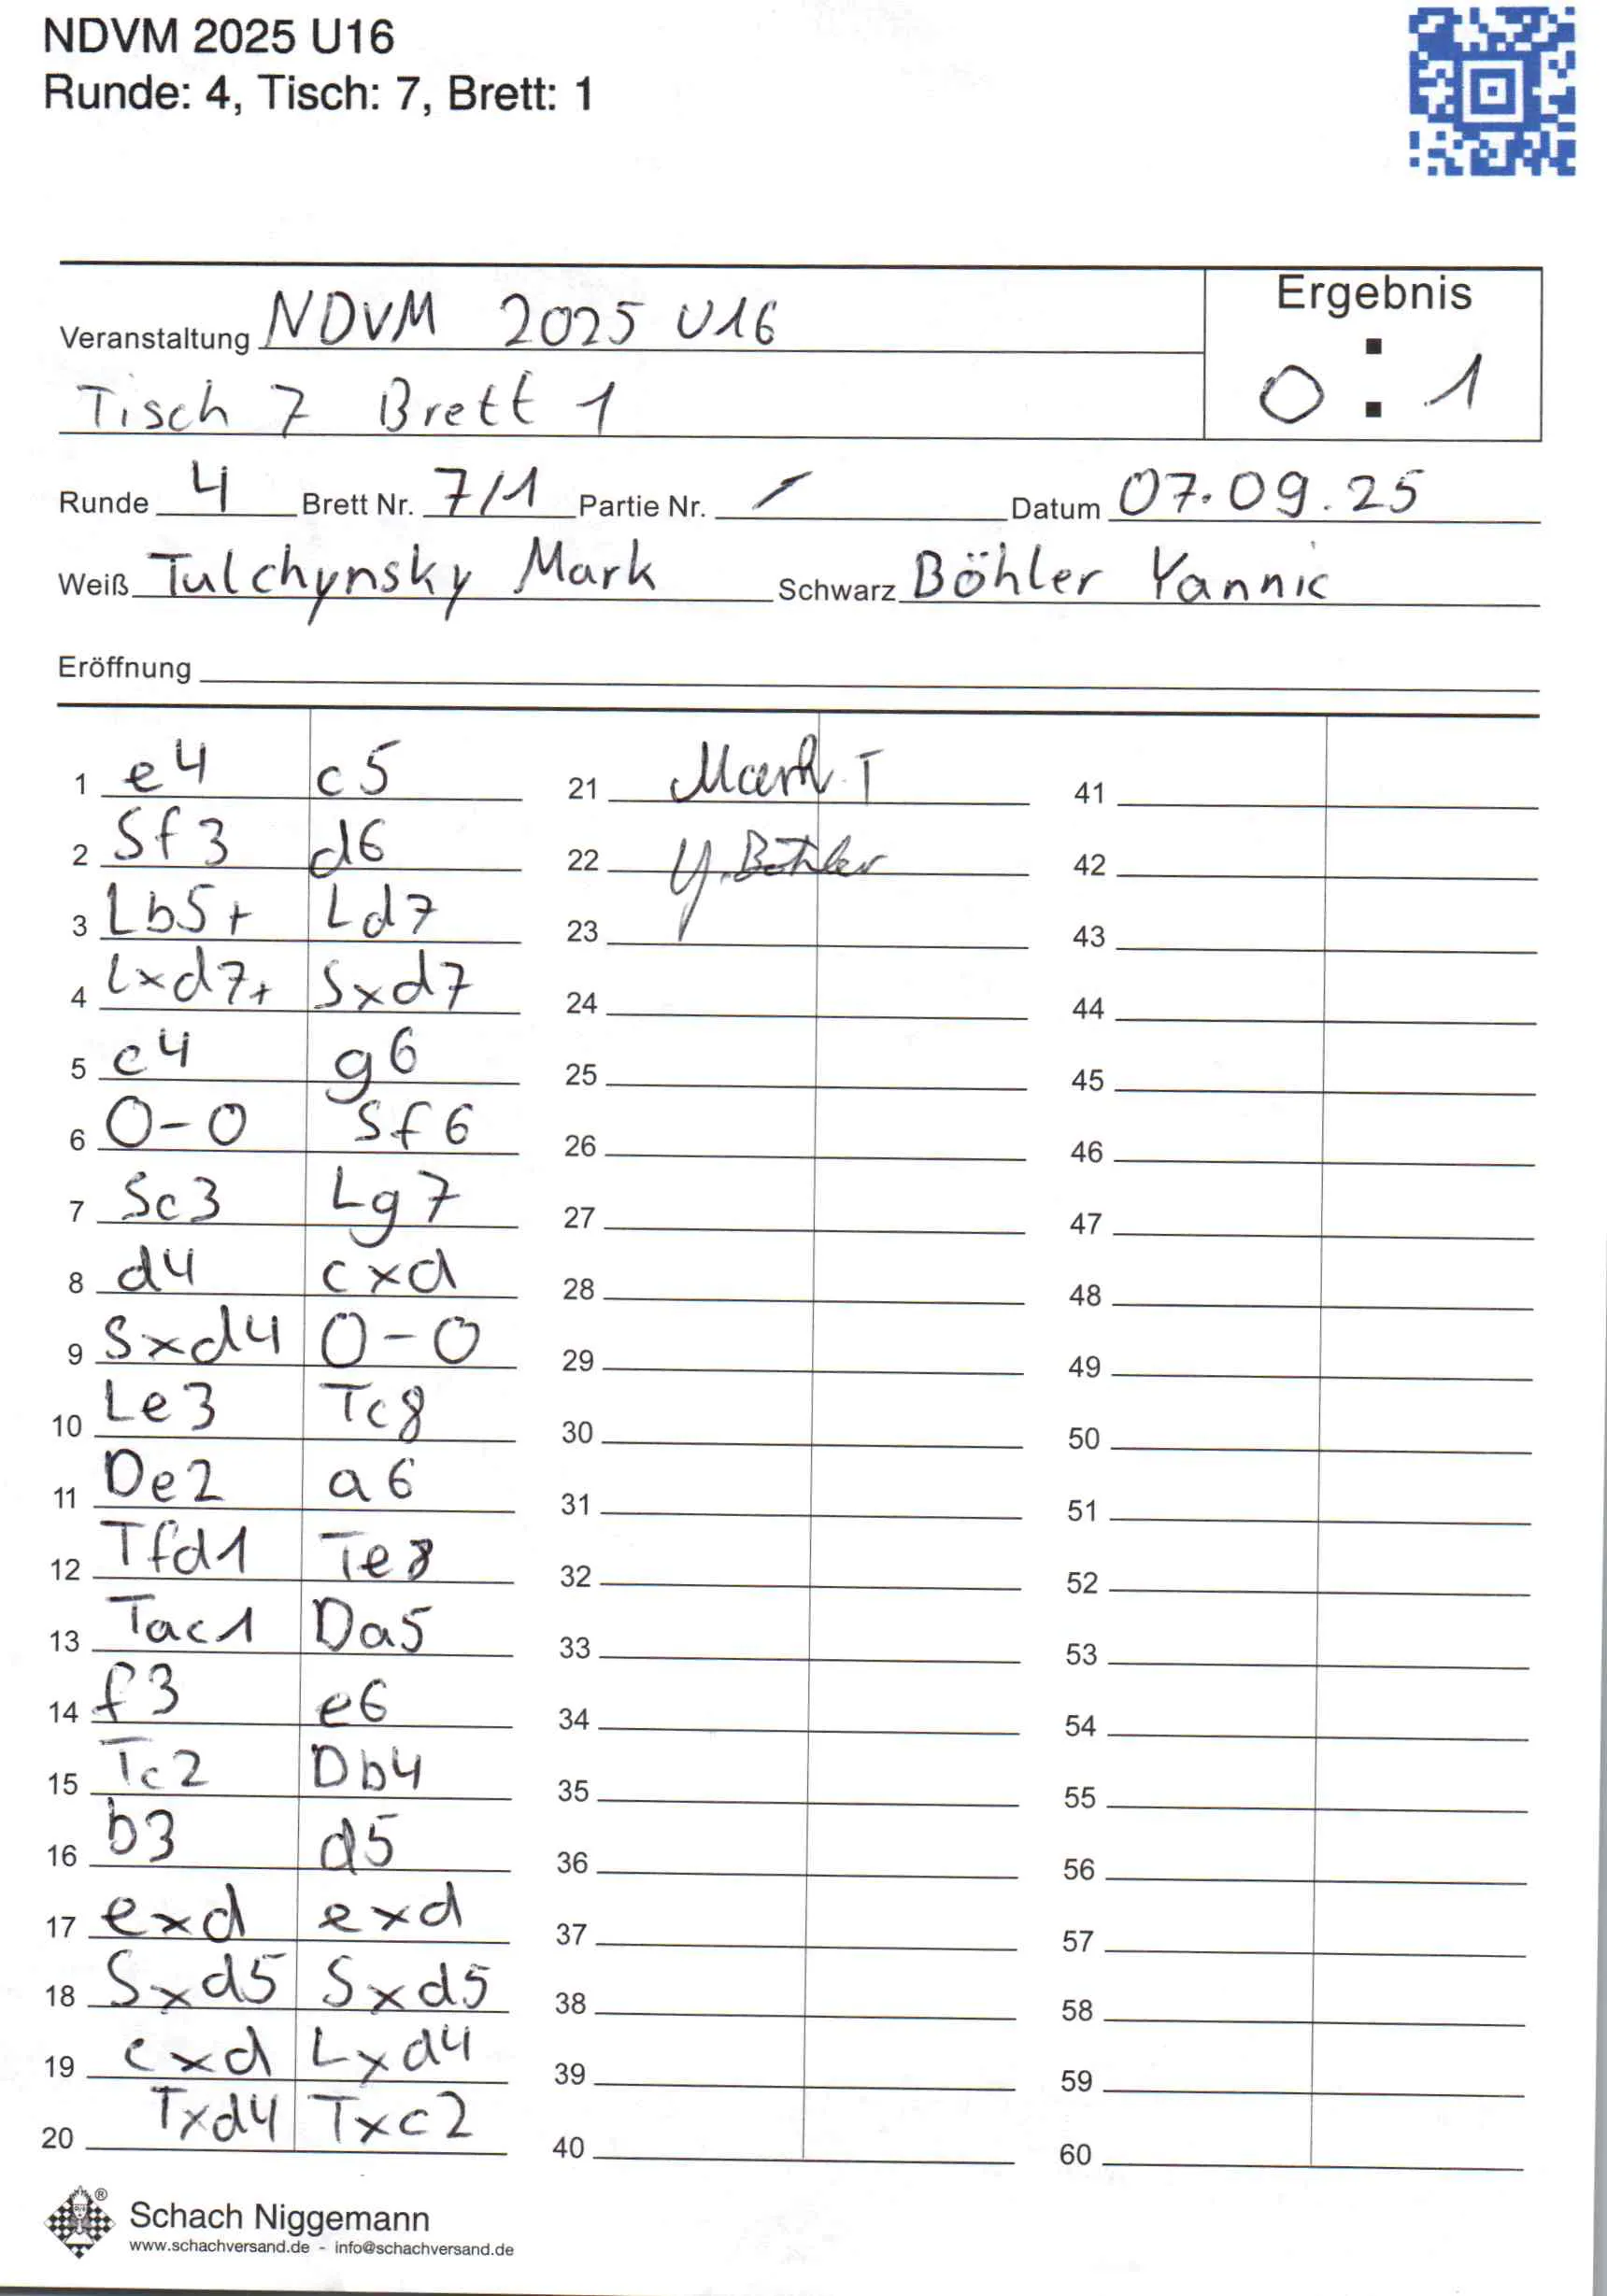 NDVM 2025 U16
Runde: 4, Tisch: 7, Brett: 1
Ergebnis
Veranstaltung NDVM 2025 U16
Tisch 7 Brett 1
0 : 1
Runde 4 Brett Nr. 7/1 Partie Nr. / Datum 07.09.25
Weiß Tulchynsky Mark Schwarz Böhler Yannic
Eröffnung
1 e4 c5
2 Sf3 d6
3 Lb5+ Ld7
4 Lxd7+ Sxd7
5 c4 g6
6 O-O Sf6
7 Sc3 Lg7
8 d4 cxd
9 Sxd4 O-O
10 Le3 Tc8
11 De2 a6
12 Tfd1 Te8
13 Tac1 Da5
14 f3 e6
15 Tc2 Db4
16 b3 d5
17 exd exd
18 Sxd5 Sxd5
19 cxd Lxd4
20 Txd4 Txc2
21 Mark T
22 Y. Böhler
23
24
25
26
27
28
29
30
31
32
33
34
35
36
37
38
39
40
41
42
43
44
45
46
47
48
49
50
51
52
53
54
55
56
57
58
59
60
®
Schach Niggemann
www.schachversand.de - info@schachversand.de